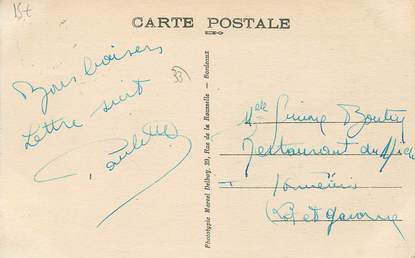 15+
CARTE POSTALE
Bons baisers
Lettre suit
Paulette
33
Phototypie Marcel Delboy, 39, Rue de la Rousselle - Bordeaux
Melle Boutin
Restaurant du Midi
Tonneins
Lot et Garonne